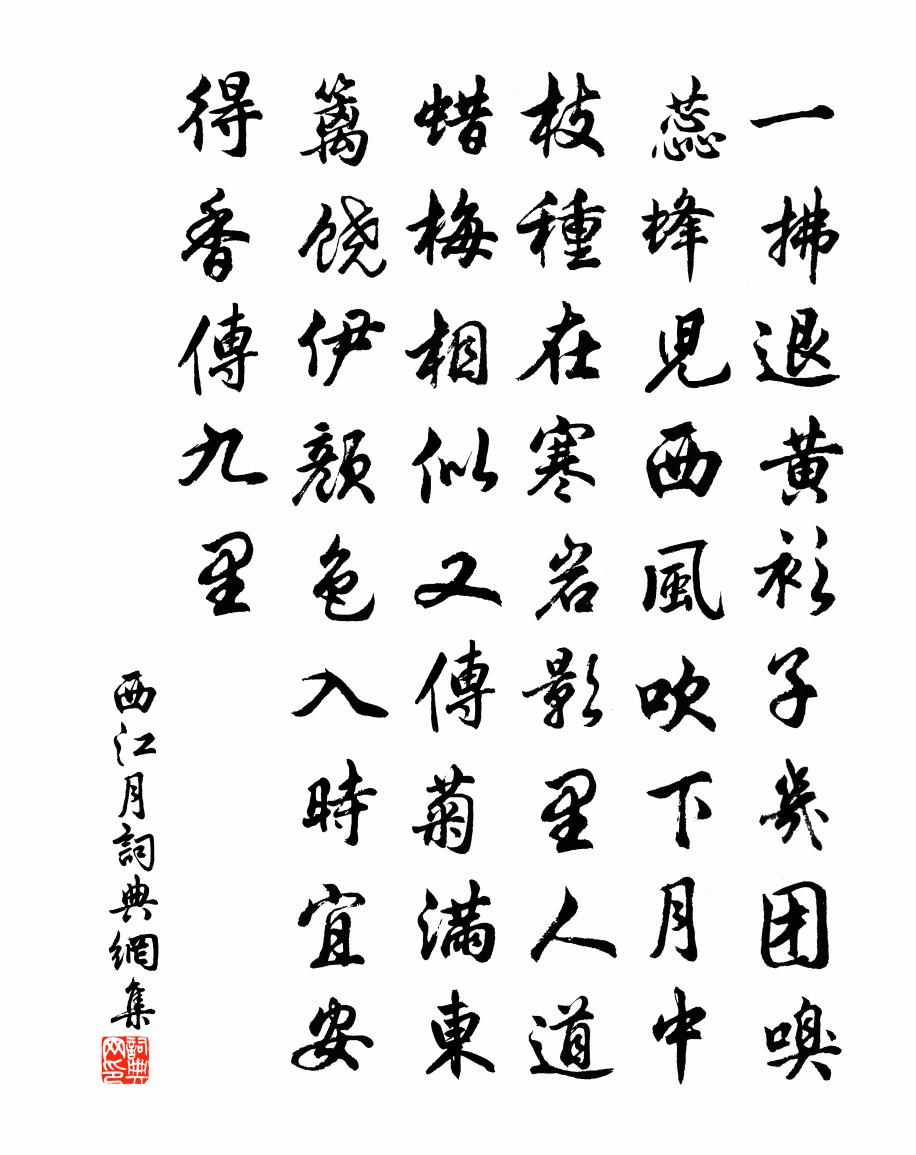 一拂退黄衫子幾团嗅
蕊蜂児西風吹下月中
枝種在寒岩影里人道
蜡梅相似又傳菊滿東
篱饶伊顔色入時宜安
得香傳九里
西江月詞典網集
詞典网印